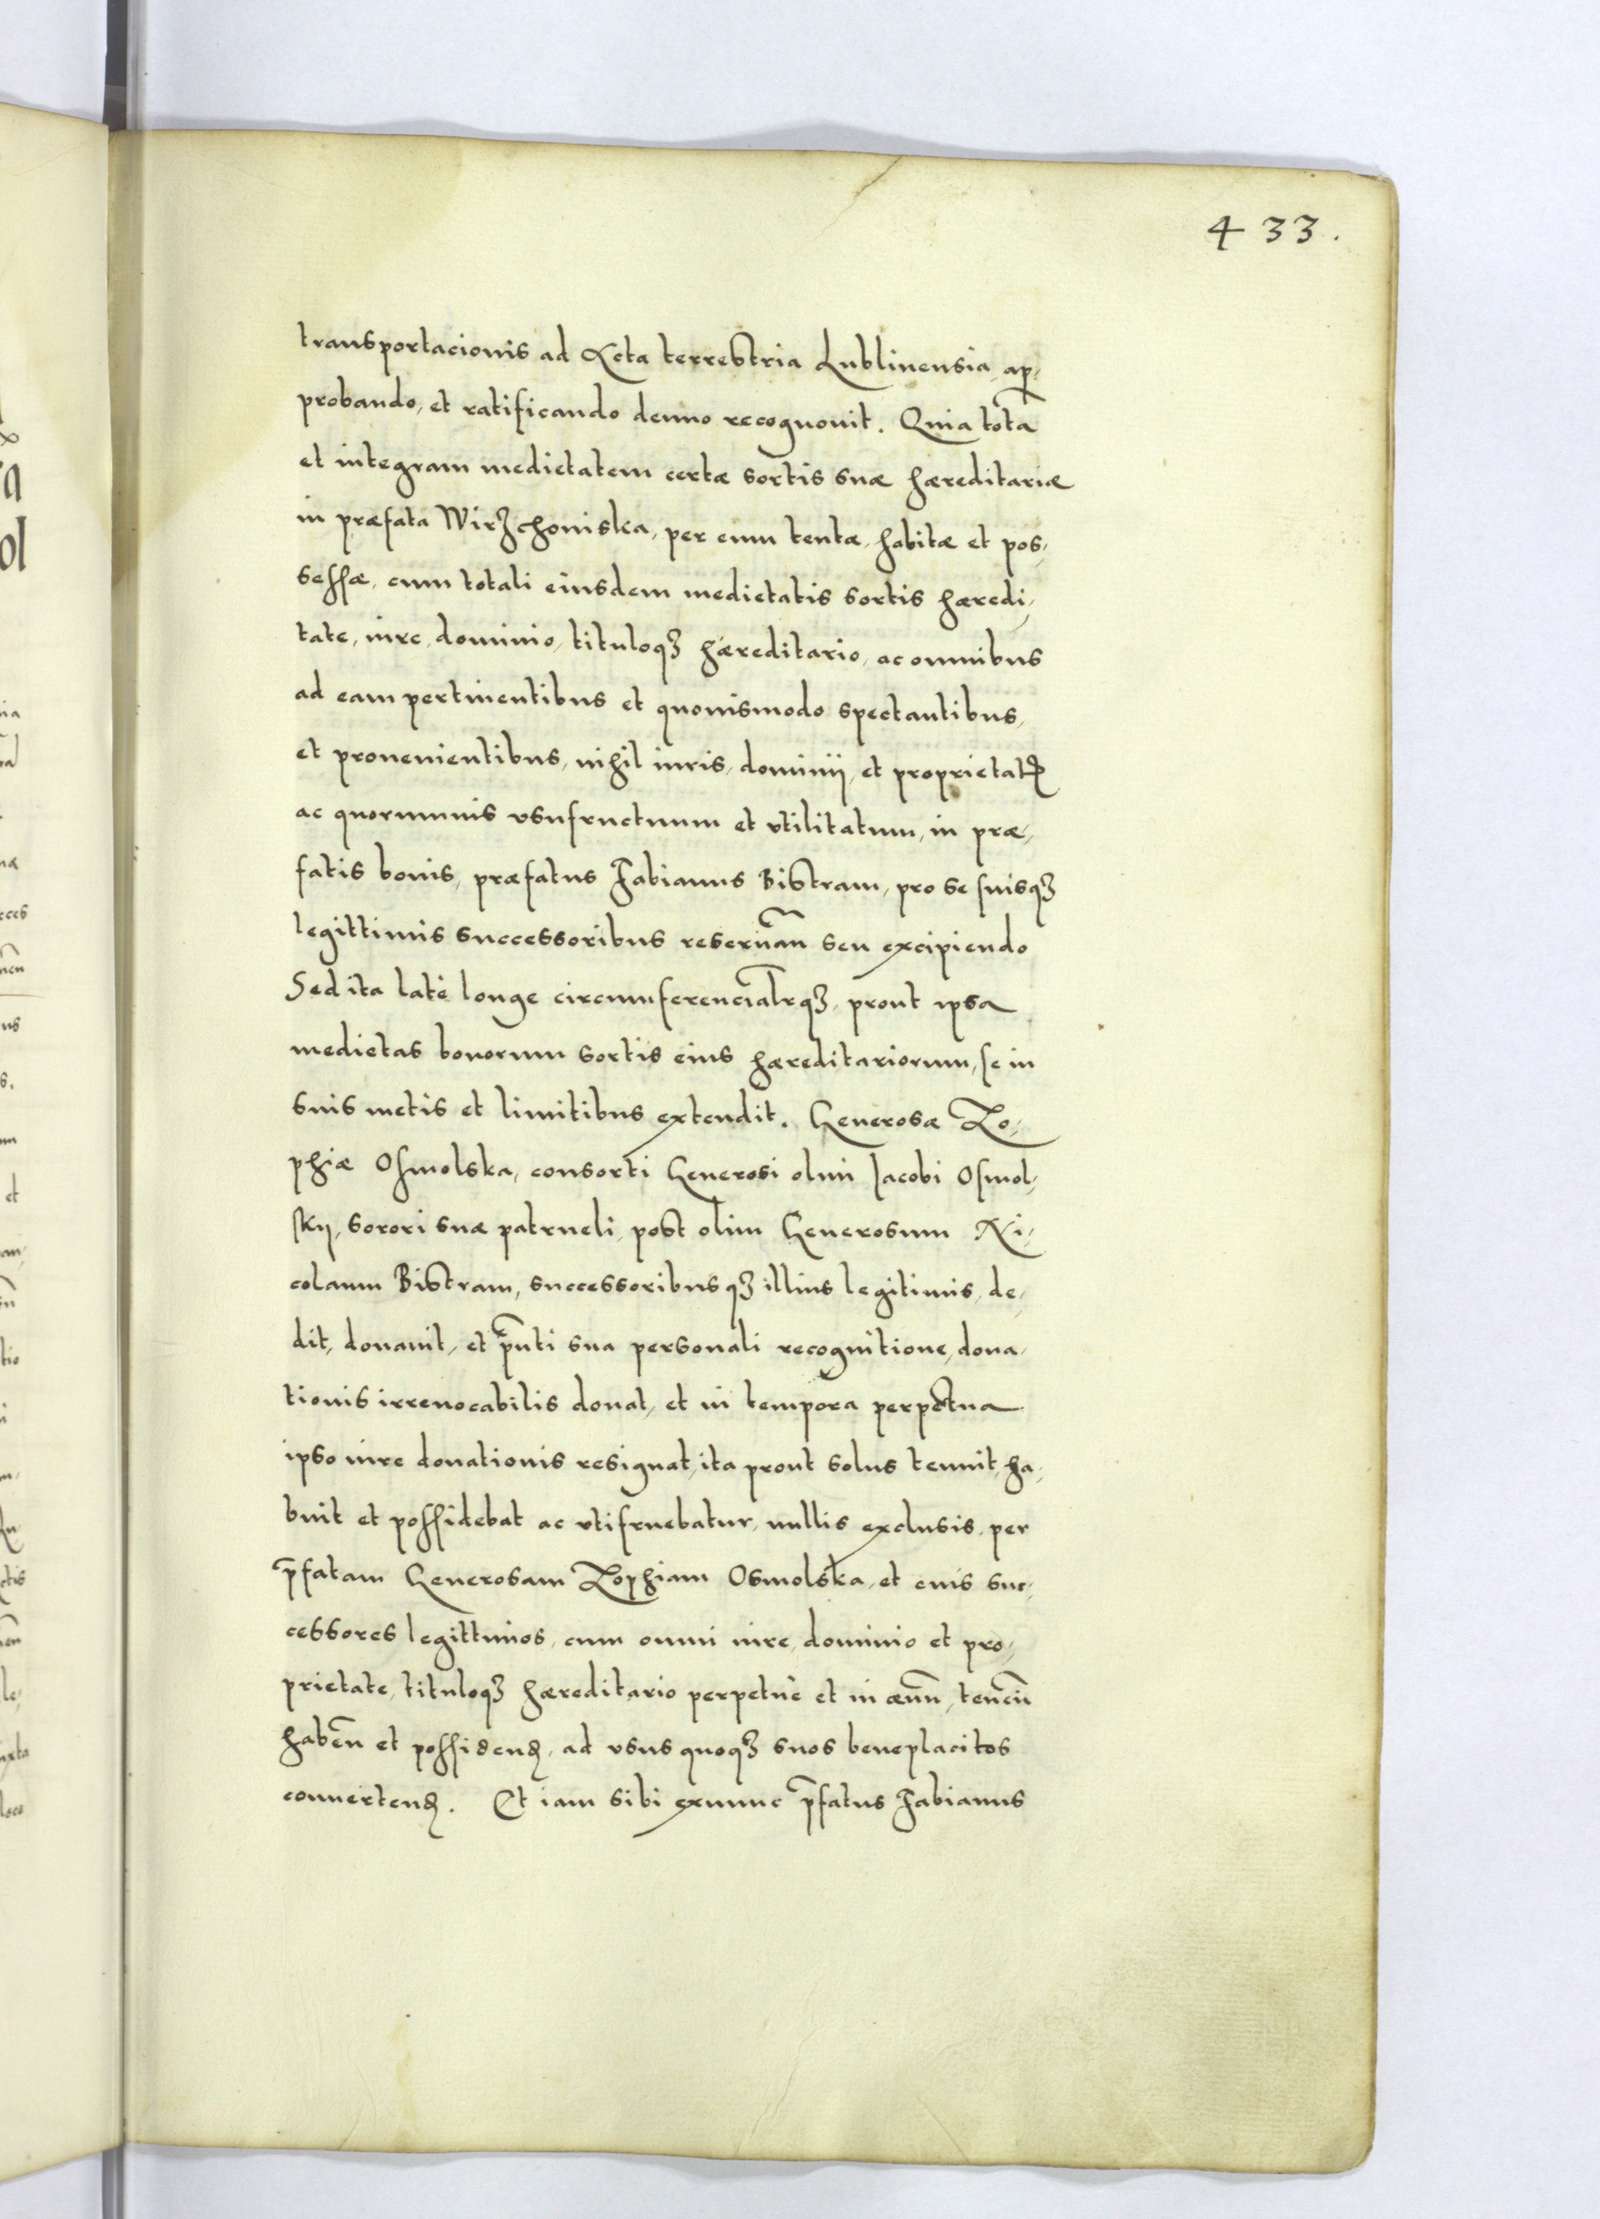 433.
transportacionis ad Acta terrestria Lublinensia, ap,
probando, et ratificando denuo recognouit. Quia tota
et integram medietatem certæ sortis suæ hæreditariæ
in præfata Wirzchoniska, per eum tentæ, habitæ et pos,
sessæ, cum totali eiusdem medietatis sortis hæredi,
tate, iure, dominio, tituloqȝ hæreditario, ac omnibus
ad eam pertinentibus et quouismodo spectantibus,
et prouenientibus, nihil iuris, dominij, et proprietatꝭ
ac quorumuis vsufructuum et vtilitatum, in præ,
fatis bonis, præfatus Fabianus Bistram, pro se suisqȝ
legittimis successoribus reseruañ seu excipiendo
Sed ita latè longe circumferencialrqȝ, prout ipsa
medietas bonorum sortis eius hæreditariorum, se in
suis metis et limitibus extendit. Generosæ Zo,
phiæ Osmolska, consorti Generosi olim Jacobi Osmol,
skij, sorori suæ patrueli, post olim Generosum Ni,
colaum Bistram, successoribusqȝ illius legitimis, de,
dit, donauit, et p̃nti sua personali recognitione, dona,
tionis irreuocabilis donat, et in tempora perpetua
ipso iure donationis resignat, ita prout solus tenuit, ha,
buit et possidebat ac vtifruebatur, nullis exclusis, per
p̃fatam Generosam Zophiam Osmolska, et eius suc,
cessores legittimos, cum omni iure, dominio et pro,
prietate, tituloqȝ hæreditario perpetuè et in æuũ, teneñ
habeñ et possidenꝺ, ad vsus quoqȝ suos beneplacitos
conuertenꝺ. Et iam sibi exnunc p̃fatus Fabianus